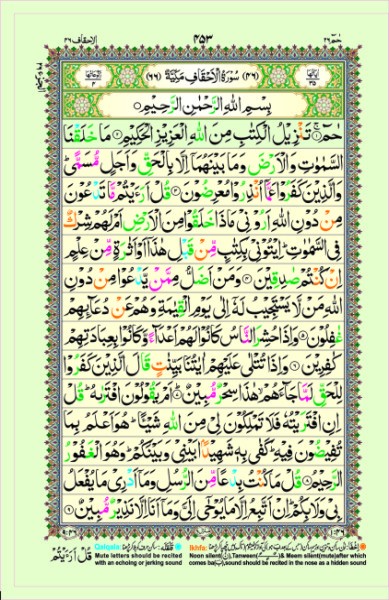 الاحقاف ٤٦ ٤٥٣ حٰمٓ ٢٦
(٤٦) سُوْرَةُ الْاَحْقَافِ مَكِّيَّةٌ (٦٦)
بِسْمِ اللهِ الرَّحْمٰنِ الرَّحِيْمِ
حٰمٓ ۚ تَنْزِيْلُ الْكِتٰبِ مِنَ اللهِ الْعَزِيْزِ الْحَكِيْمِ مَا خَلَقْنَا
السَّمٰوٰتِ وَالْاَرْضَ وَمَا بَيْنَهُمَاۤ اِلَّا بِالْحَقِّ وَاَجَلٍ مُّسَمًّى ؕ
وَالَّذِيْنَ كَفَرُوْا عَمَّاۤ اُنْذِرُوْا مُعْرِضُوْنَ قُلْ اَرَءَيْتُمْ مَّا تَدْعُوْنَ
مِنْ دُوْنِ اللهِ اَرُوْنِيْ مَاذَا خَلَقُوْا مِنَ الْاَرْضِ اَمْ لَهُمْ شِرْكٌ
فِي السَّمٰوٰتِ ؕ اِيْتُوْنِيْ بِكِتٰبٍ مِّنْ قَبْلِ هٰذَاۤ اَوْ اَثٰرَةٍ مِّنْ عِلْمٍ
اِنْ كُنْتُمْ صٰدِقِيْنَ وَمَنْ اَضَلُّ مِمَّنْ يَّدْعُوْا مِنْ دُوْنِ
اللهِ مَنْ لَّا يَسْتَجِيْبُ لَهٗۤ اِلٰى يَوْمِ الْقِيٰمَةِ وَهُمْ عَنْ دُعَآئِهِمْ
غٰفِلُوْنَ وَاِذَا حُشِرَ النَّاسُ كَانُوْا لَهُمْ اَعْدَآءً وَّكَانُوْا بِعِبَادَتِهِمْ
كٰفِرِيْنَ وَاِذَا تُتْلٰى عَلَيْهِمْ اٰيٰتُنَا بَيِّنٰتٍ قَالَ الَّذِيْنَ كَفَرُوْا
لِلْحَقِّ لَمَّا جَآءَهُمْ ۙ هٰذَا سِحْرٌ مُّبِيْنٌ اَمْ يَقُوْلُوْنَ افْتَرٰىهُ ؕ قُلْ
اِنِ افْتَرَيْتُهٗ فَلَا تَمْلِكُوْنَ لِيْ مِنَ اللهِ شَيْـًٔا ؕ هُوَ اَعْلَمُ بِمَا
تُفِيْضُوْنَ فِيْهِ ؕ كَفٰى بِهٖ شَهِيْدًۢا بَيْنِيْ وَبَيْنَكُمْ ؕ وَهُوَ الْغَفُوْرُ
الرَّحِيْمُ قُلْ مَا كُنْتُ بِدْعًا مِّنَ الرُّسُلِ وَمَاۤ اَدْرِيْ مَا يُفْعَلُ
بِيْ وَلَا بِكُمْ ؕ اِنْ اَتَّبِعُ اِلَّا مَا يُوْحٰۤى اِلَيَّ وَمَاۤ اَنَا اِلَّا نَذِيْرٌ مُّبِيْنٌ
قُلْ اَرَءَيْتُمْ
Qalqala:
Mute letters should be recited
with an echoing or jerking sound
Ikhfa:
Noon silent(نْ),Tanween() & Meem silent(mute)after which
comes ba(ب)sound should be recited in the nose as a hidden sound